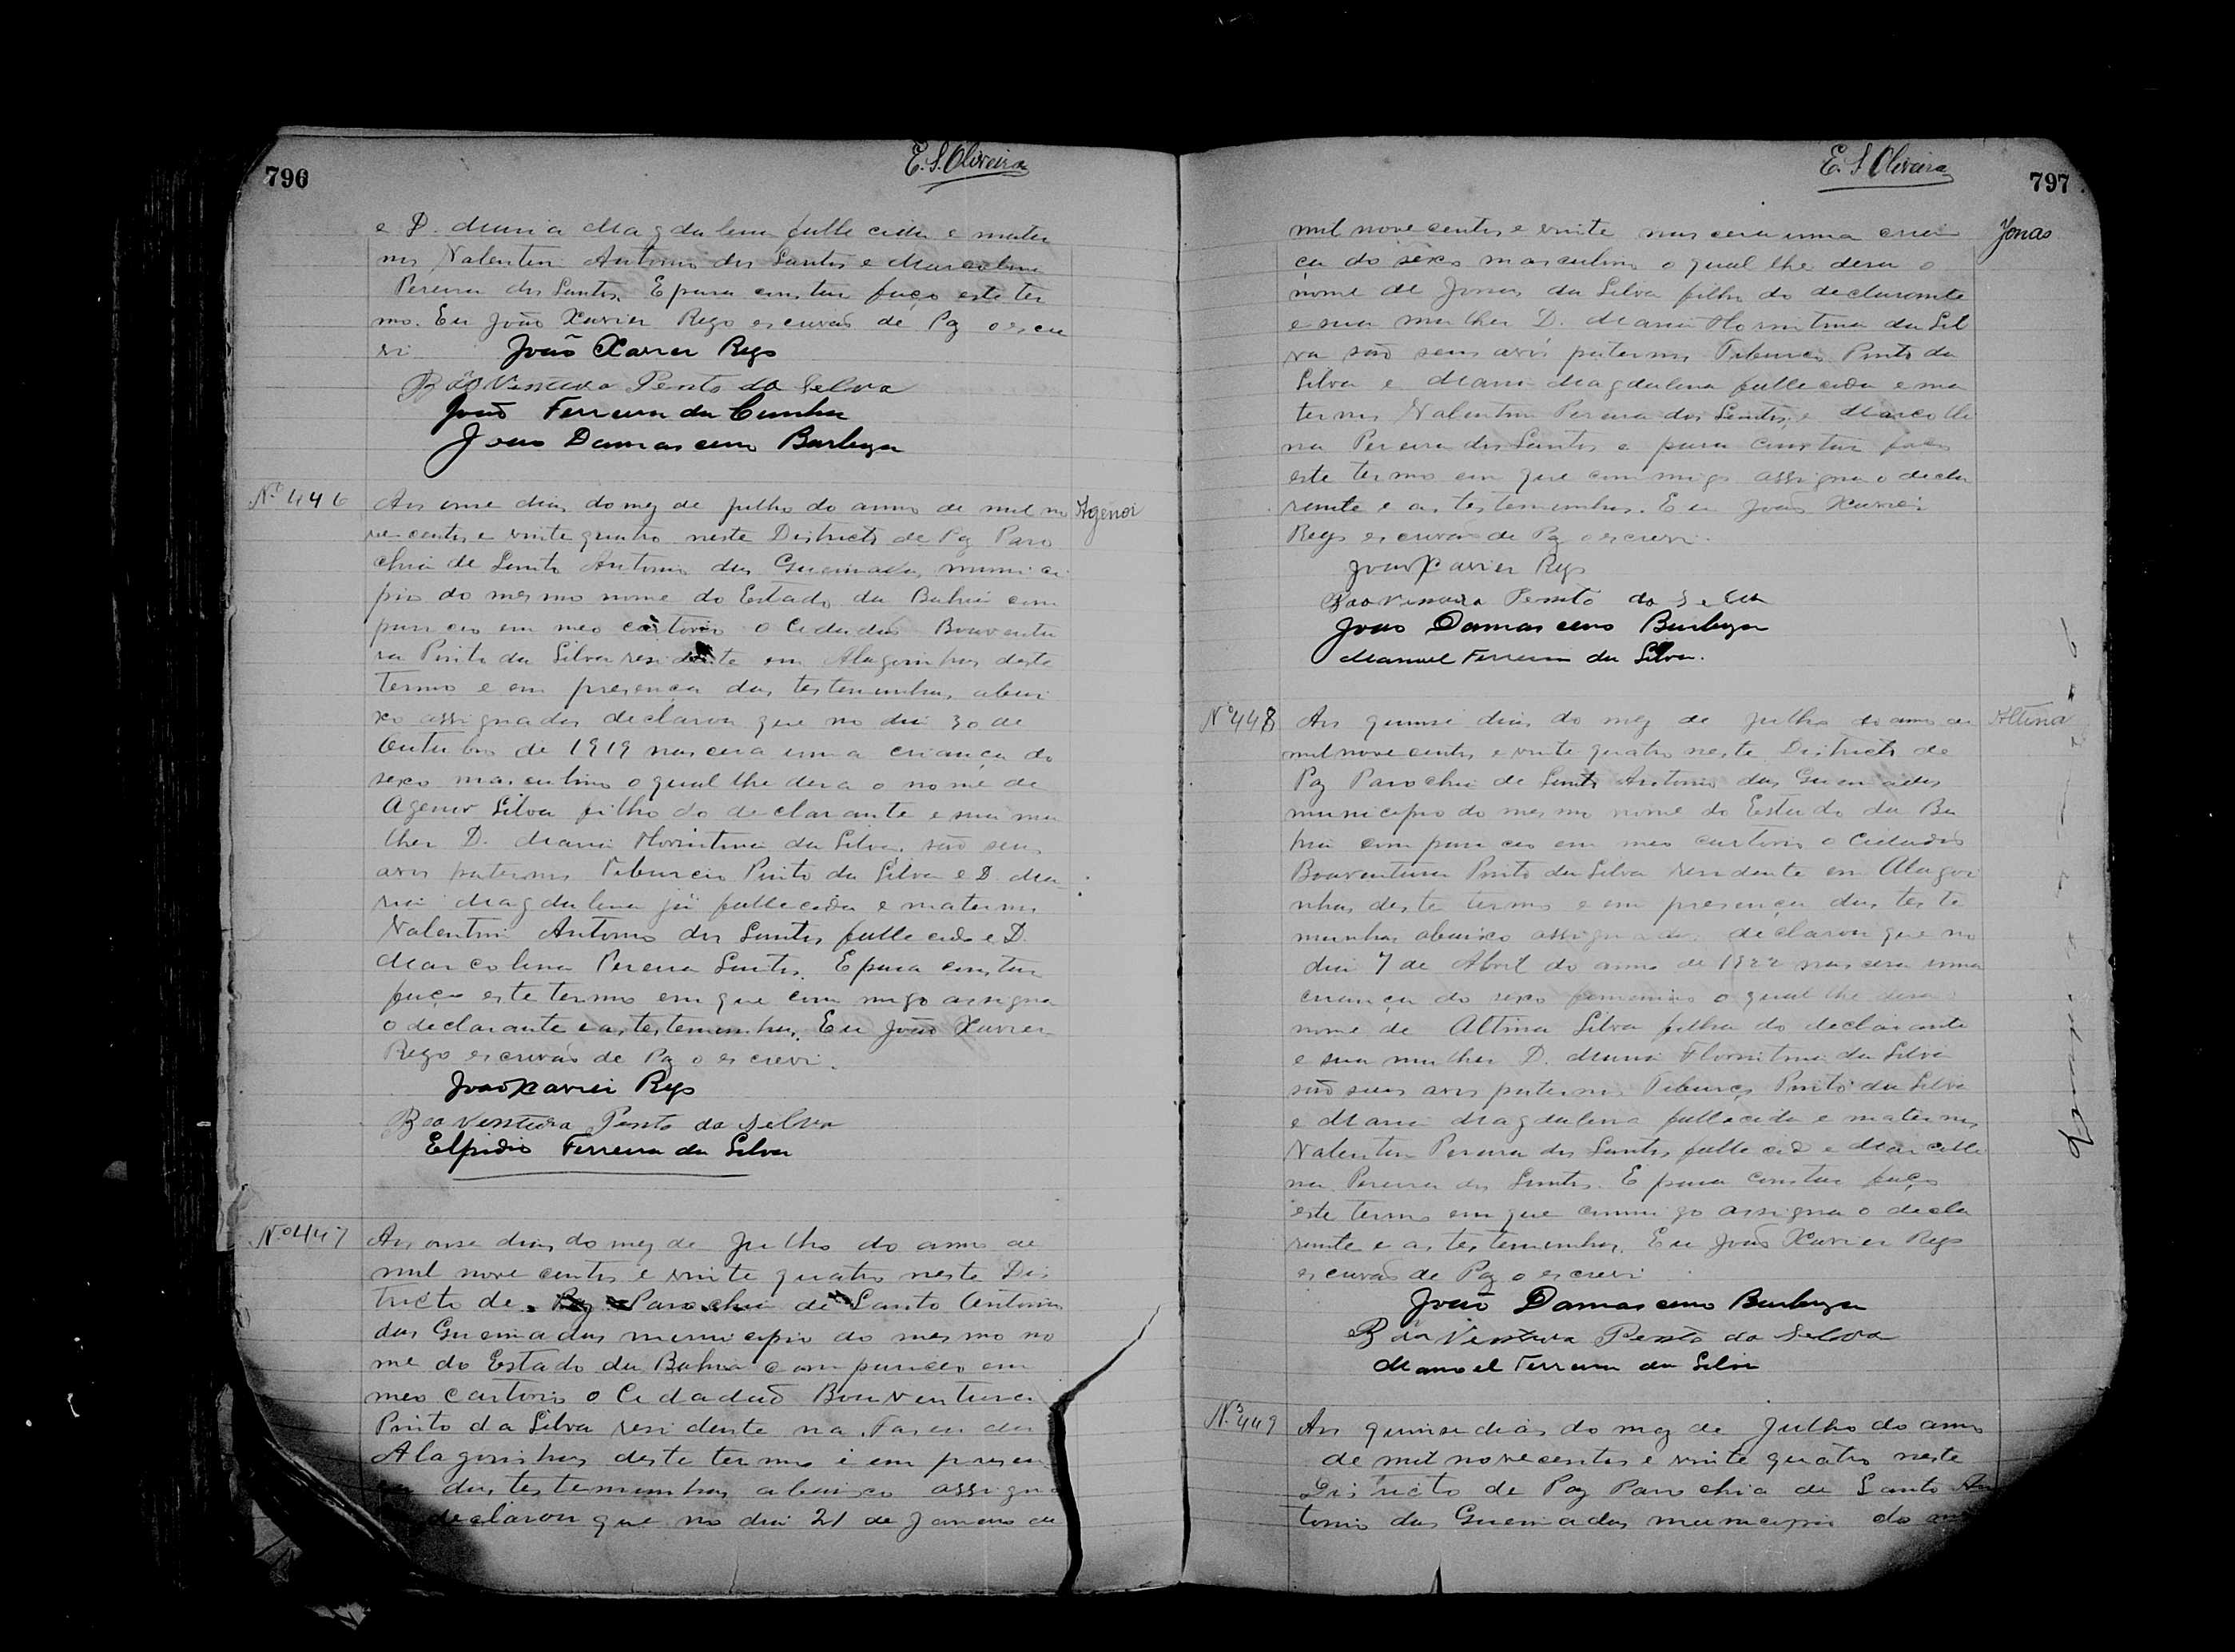 796
E. S. Oliveira
e D. Maria Magdalena fallecida e mater
nos Valentim Antonio dos Santos e Marcolina
Pereira dos Santos. E para constar faço este ter
mo. Eu João Xavier Rego escrivaõ de Paz o escre
vi
João Xavier Rego
Boaventura Pento da Selva
João Ferreira da Cunha
João Damasceno Barboza
Nº 446
Agenor
Aos onse dias do mez de julho do anno de mil no
ve centos e vinte quatro neste Districto de Paz Paro
chia de Santo Antonio das Queimadas, munici
pio do mesmo nome do Estado da Bahia com
pareceo em meo cartorio o Cidadaõ Boaventu
ra Pinto da Silva residente em Alagoinhas deste
Termo e em presença das testemunhas abai
xo assignadas declarou que no dia 30 de
Outubro de 1919 nascera uma criança do
sexo masculino o qual lhe dera o nome de
Agenor Silva filho do declarante e sua mu
lher D. Maria Florintina da Silva, saõ seus
avos paternos Tiburcio Pinto da Silva e D. Ma
ria Magdalena já fallecida e maternos
Valentim Antonio dos Santos fallecido e D.
Marcolina Pereira Santos. E para constar
faço este termo em que com migo assigna
o declarante e as testemunhas. Eu João Xavier
Rego escrivaõ de Paz o escrevi.
João Xavier Rego
Boa Ventura Pento da Selva
Elpidio Ferreira da Silva
Nº 447
Aos onse dias do mez de Julho do anno de
mil nove centos e vinte quatro neste Dis
tricto de Paz Parochia de Santo Antonio
das Queimadas municipio do mesmo no
me do Estado da Bahia compareceo em
meo cartorio o Cidadaõ Boaventura
Pinto da Silva residente na Fasenda
Alagoinhas deste termo e em presen
ça das testemunhas abaixo assigna
declarou que no dia 21 de Janeiro de
E. S. Oliveira
797
Jonas
mil nove centos e vinte nascera uma crian
ça do sexo masculino o qual lhe dera o
nome de Jonas da Silva filho do declarante
e sua mulher D. Maria Florintina da Sil
va saõ seus avós paternos Tiburcio Pinto da
Silva e Maria Magdalena fallecida e ma
ternos Valentim Pereira dos Santos e Marcolli
na Pereira dos Santos e para constar faço
este termo em que commigo assigna o decla
rante e as testemunhas. Eu João Xavier
Rego escrivaõ de Paz o escrevi.
João Xavier Rego
Boaventura Pento da Selva
João Damasceno Barboza
Manoel Ferreira da Silva.
Nº 448
Altina
Aos quinse dias do mez de julho do anno de
mil nove centos e vinte quatro neste Districto de
Paz Parochia de Santo Antonio das Queimadas
municipio do mesmo nome do Estado da Ba
hia compareceo em meo cartorio o Cidadaõ
Boaventura Pinto da Silva residente em Alagoi
nhas deste termo e em presença das teste
munhas abaixo assignadas declarou que no
dia 7 de Abril do anno de 1922 nascera uma
criança do sexo femenino o qual lhe dera o
nome de Altina Silva filha do declarante
e sua mulher D. Maria Florintina da Silva
saõ seus avos paternos Tiburço Pinto da Silva
e Maria Magdalena fallecida e maternos
Valentim Pereira dos Santos fallecido e Marcolli
na Pereira dos Santos. E para constar faço
este termo em que commigo assigna o decla
rante e as testemunhas. Eu João Xavier Rego
escrivaõ de Paz o escrevi
João Damasceno Barboza
Boa Ventura Pento da Selva
Manoel Ferreira da Silva
Nº 449
Aos quinse dias do mez de Julho do anno
de mil novecentos e vinte quatro neste
Districto de Paz Parochia de Santo An
tonio das Queimadas municipio do